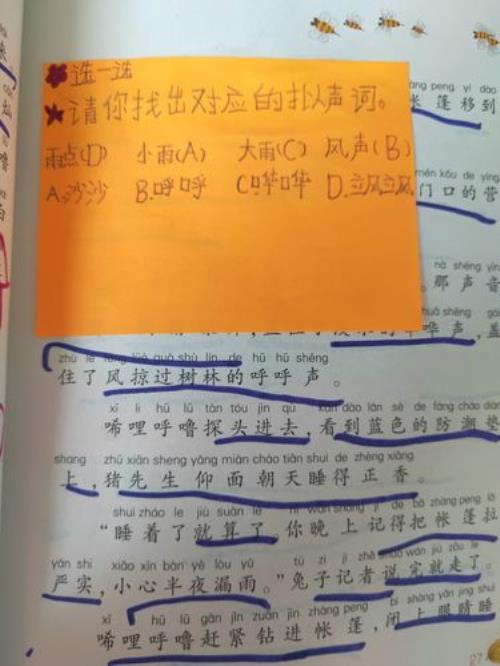 选一选
请你找出对应的拟声词。
雨点(D) 小雨(A) 大雨(C) 风声(B)
A.沙沙 B.呼呼 C.哗哗 D.飒飒
peng yi dào
帐篷移到
mén kǒu de yíng
门口的营
nà shēng yīn
那声音
哗声,
zhù le fēng lüè guò shù lín de hū hū shēng
住了风掠过树林的呼呼声。
xī li hū lū tàn tóu jìn qù kàn dào lán sè de fáng cháo diàn
唏哩呼噜探头进去,看到蓝色的防潮垫
shang zhū xiān sheng yǎng miàn cháo tiān shuì de zhèng xiāng
上,猪先生仰面朝天睡得正香。
shuì zháo le jiù suàn le nǐ wǎn shang jì de bǎ zhàng peng lā
“睡着了就算了。你晚上记得把帐篷拉
yán shi xiǎo xīn bàn yè lòu yǔ tù zi jì zhě shuō wán jiù zǒu le
严实,小心半夜漏雨。”兔子记者说完就走了。
xī li hū lū gǎn jǐn zuān jìn zhàng peng bì shàng yǎn jing shuì
唏哩呼噜赶紧钻进帐篷,闭上眼睛睡
27